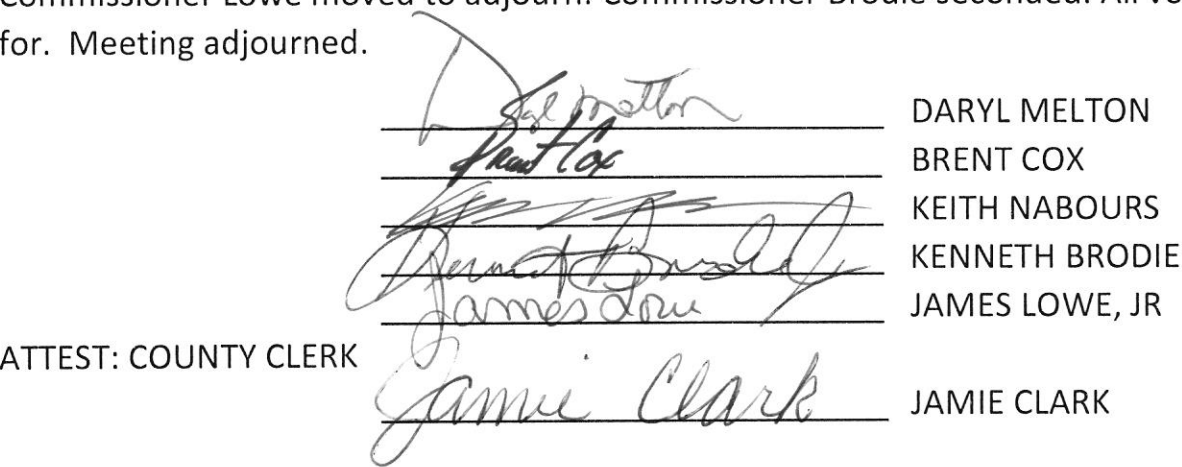 Commissioner Lowe moved to adjourn. Commissioner Brodie seconded. All vo
for. Meeting adjourned.
Daryl Melton DARYL MELTON
Brent Cox BRENT COX
KEITH NABOURS
Kenneth Brodie KENNETH BRODIE
James Lowe JAMES LOWE, JR
ATTEST: COUNTY CLERK
Jamie Clark JAMIE CLARK